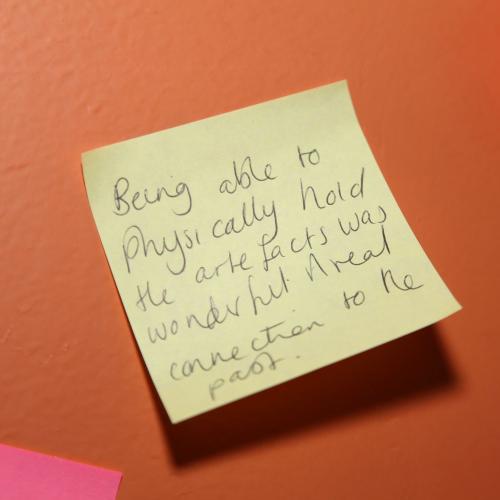 Being able to
physically hold
the artefacts was
wonderful. A real
connection to the
past.